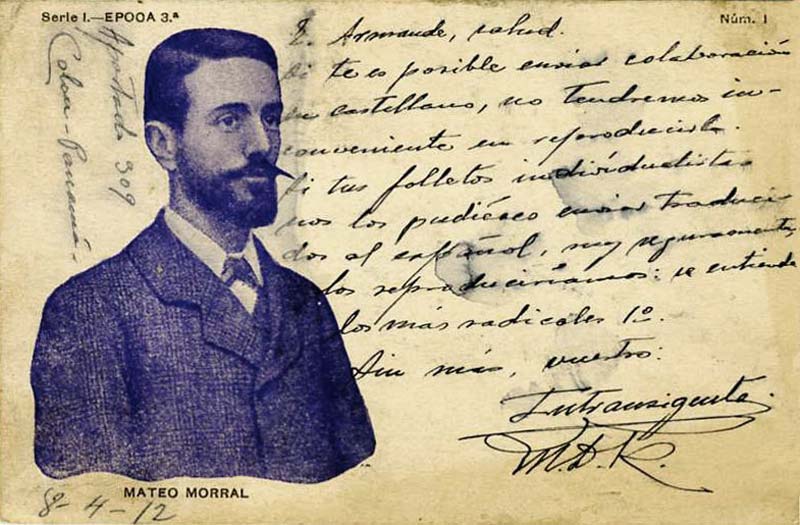 Serie I.—EPOCA 3.ª
Núm. 1
Apartado 309
Colon-Panamá-
E. Armande, salud.
Si te es posible enviar colaboración
en castellano, no tendremos in-
conveniente en reproducirla.
Si tus folletos individualistas
nos los pudiéseo enviar traduci
dos al español, muy seguramente,
los reproduciríamos: se entiende
los más radicales 1º.
Sin más, vuestro:
Intransigente.
M.D.R.
MATEO MORRAL
8-4-12